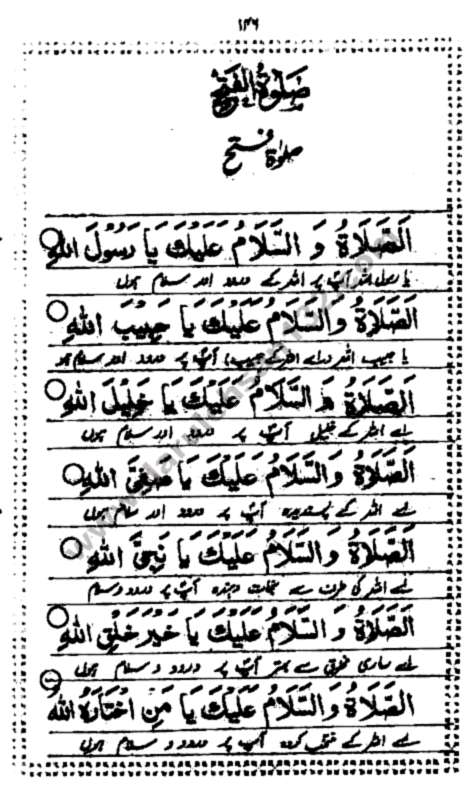 ۱۴۶
صَلٰوةُ الْفَتْحِ
صلوٰۃ فتح
اَلصَّلَاةُ وَ السَّلَامُ عَلَيْكَ يَا رَسُوْلَ اللهِ
یا رسول اللہ آپؐ پر اللہ کے درود اور سلام ہوں
اَلصَّلَاةُ وَالسَّلَامُ عَلَيْكَ يَا حَبِيْبَ اللهِ
یا حبیب اللہ (اے اللہ کے حبیب) آپؐ پر درود اور سلام ہو
اَلصَّلَاةُ وَ السَّلَامُ عَلَيْكَ يَا خَلِيْلَ اللهِ
اے اللہ کے خلیل آپؐ پر درود اور سلام ہوں
اَلصَّلَاةُ وَالسَّلَامُ عَلَيْكَ يَا صَفِيَّ اللهِ
اے اللہ کے پسندیدہ آپؐ پر درود اور سلام ہوں
اَلصَّلَاةُ وَالسَّلَامُ عَلَيْكَ يَا نَجِيَّ اللهِ
اے اللہ کی طرف سے نجات دہندہ آپؐ پر درود و سلام
اَلصَّلَاةُ وَ السَّلَامُ عَلَيْكَ يَا خَيْرَ خَلْقِ اللهِ
اے ساری خلق سے بہتر آپؐ پر درود و سلام ہوں
اَلصَّلَاةُ وَالسَّلَامُ عَلَيْكَ يَا مَنِ اخْتَارَهُ الله
اے اللہ کے منتخب کردہ آپؐ پر درود و سلام ہوں